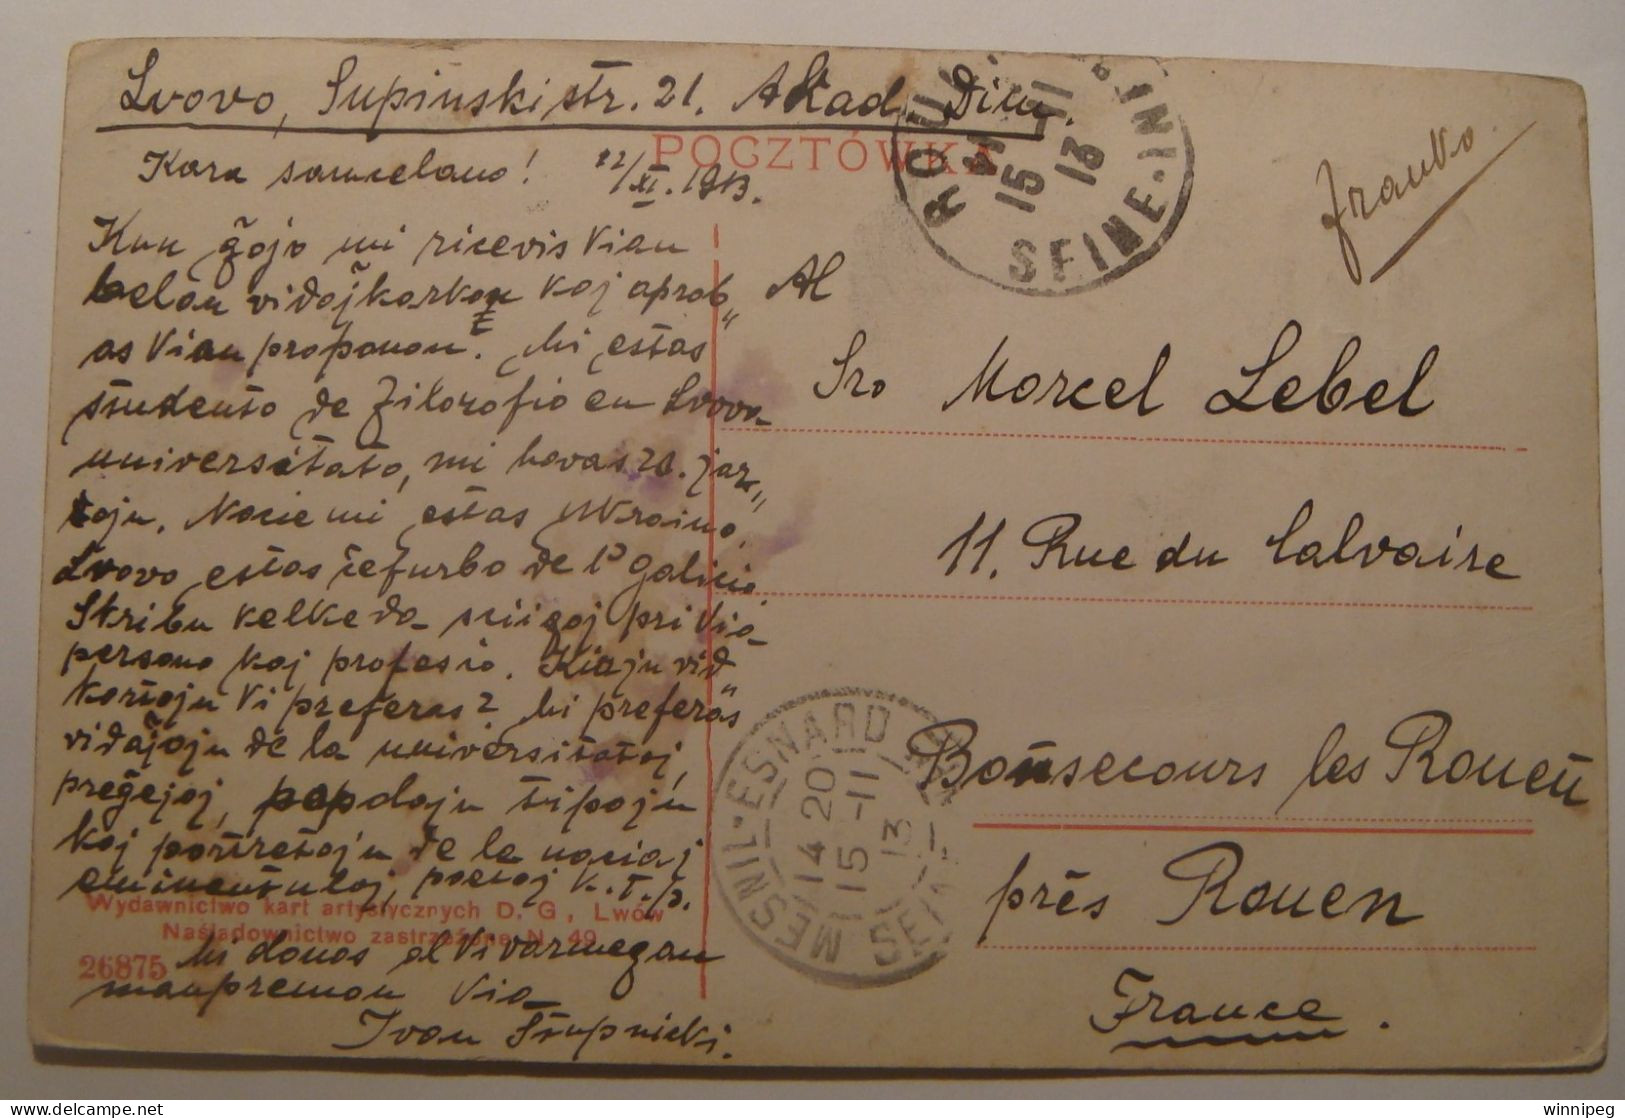 Lvovo, Supinski str. 21. Akad. Dim.
POCZTÓWKA
Kara samcelano! 12/XI. 1913.
Kun ĝojo mi ricevis Vian
belan vidajkarton kaj aprob„
as Vian proponon. Mi estas
studento de filozofio en Lvova
universitato, mi havas 20. jar„
ojn. Nacie mi estas Ukraino.
Lvovo estas ĉefurbo de l' Galicio.
Skribu kelke da sciigoj pri Via
persono kaj profesio. Kiajn vid„
kartojn Vi preferas? Mi preferas
vidaĵojn de la universitatoj,
preĝejoj, popolajn tipojn
kaj portretojn de la naciaj
eminentuloj, poetoj k.t.p.
Wydawnictwo kart artystycznych D. G, Lwów
Naśladownictwo zastrzeżone N. 49
26875
Mi donas al Vi varmegan
manpremon Via
Ivan Stupnicki.
franko
ROU
15-11
13
SEINE-IN
Al
Sro Marcel Lebel
11. Rue du Calvaire
Bonsecours les Rouen
près Rouen
France.
MESNIL-ESNARD
14 20
15-11
13
SEI
winnipeg